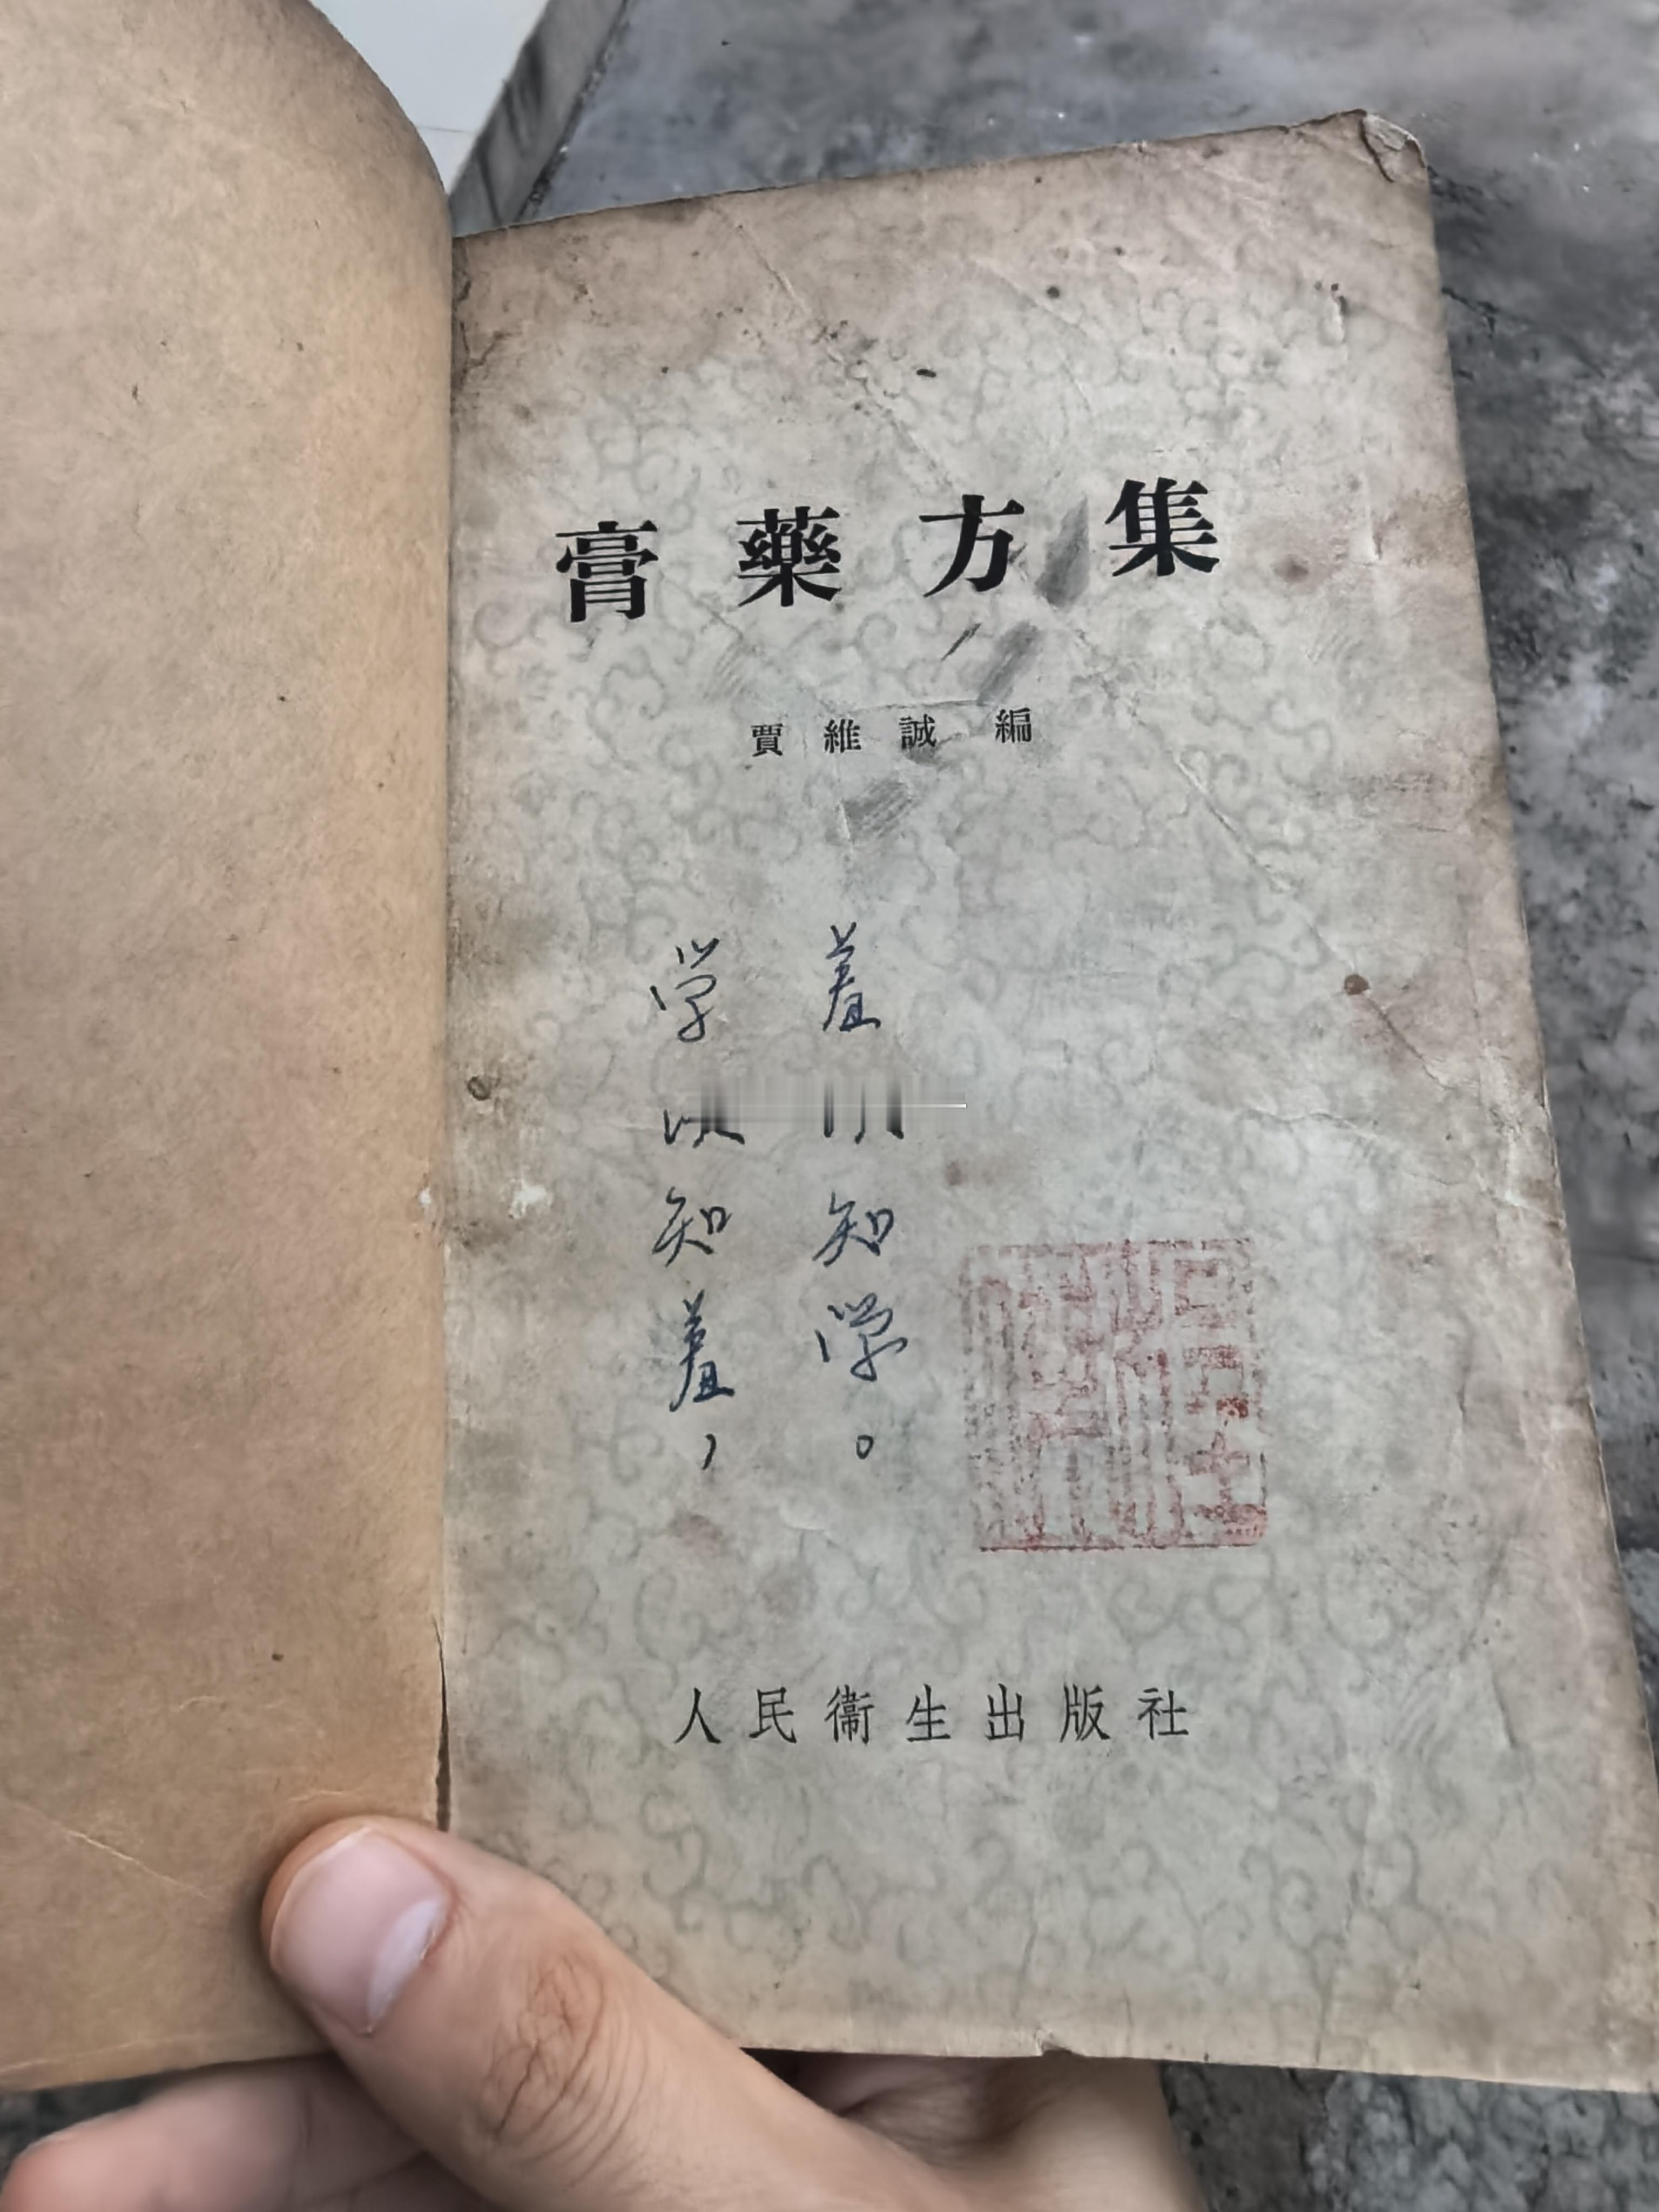 膏藥方集
賈維誠 編
学以知羞，
羞以知学。
人民衞生出版社